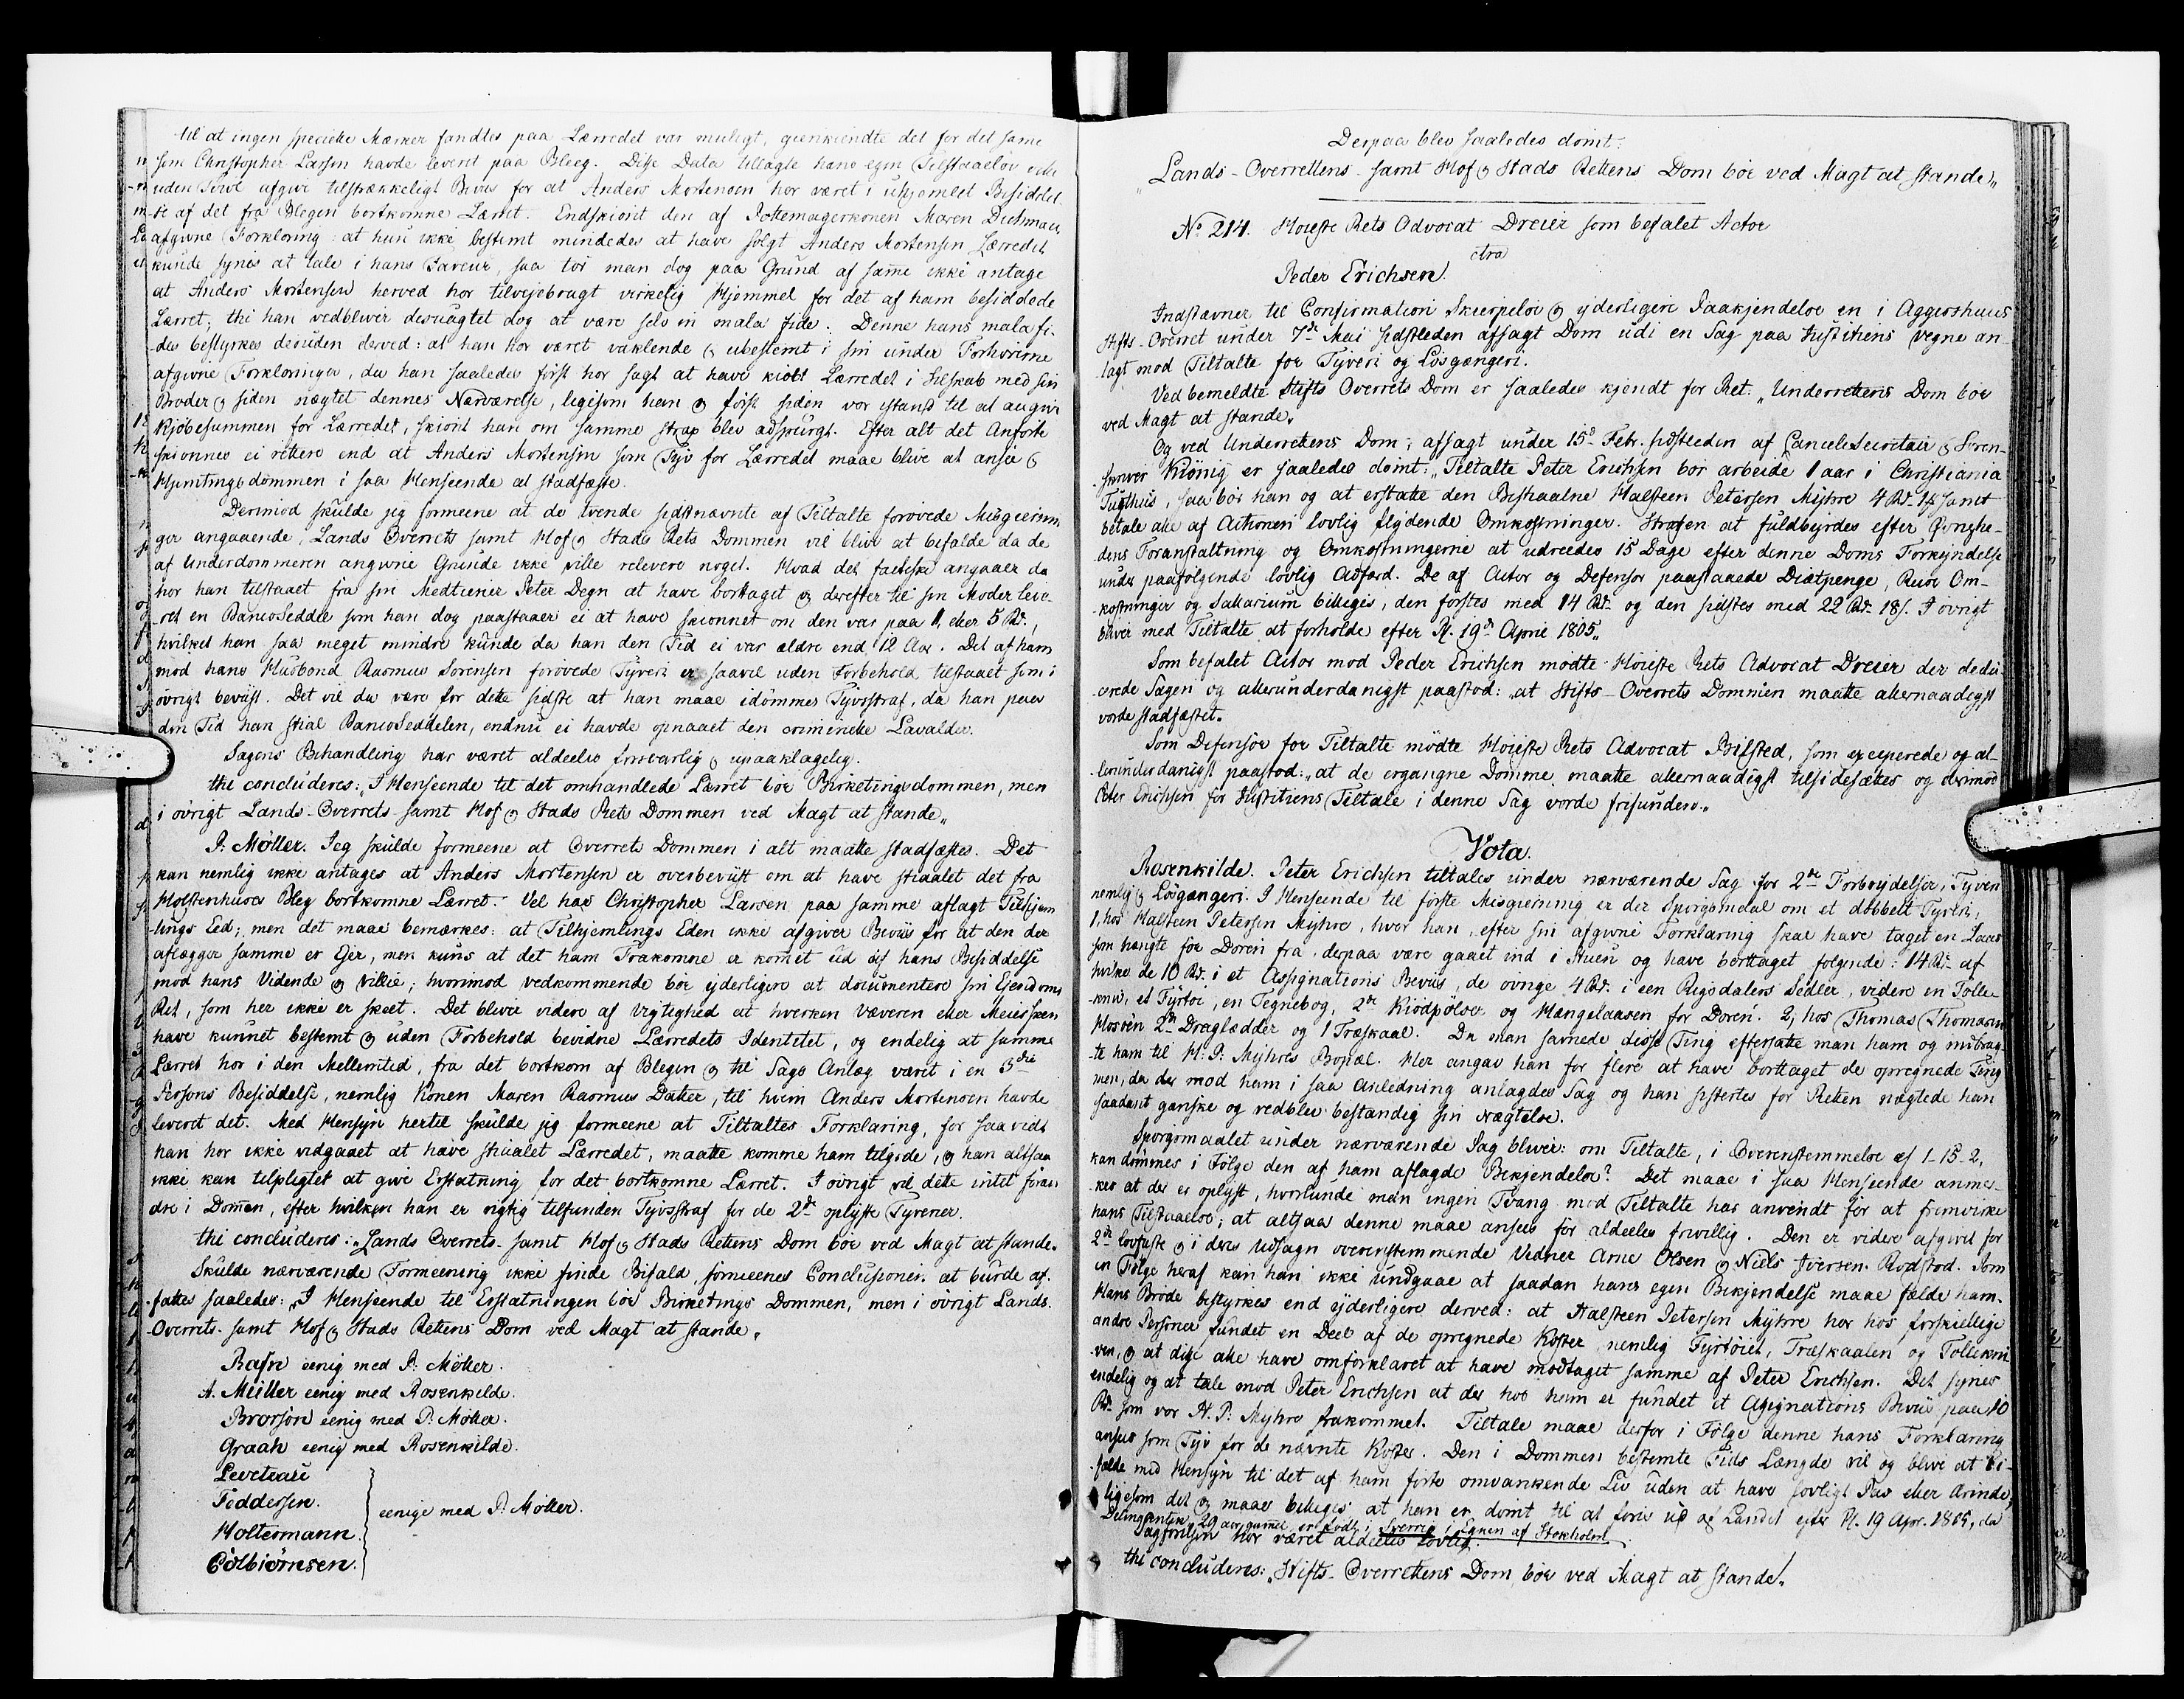 til at ingen specielle Mærker fandtes paa Lærredet var mueligt, gienkiendte det for det samme
som Christopher Larsen havde leveret paa Bleeg. Disse Data tillagte hans egen Tilstaaelse vilde
uden Tvivl afgive tilstrækkeligt Beviis for at Anders Mortensen har været i uhjemlet Besiddel-
se af det fra Blegen bortkomne Lærret. Endskiønt den af Pottemagerkonen Maren Dichmann
afgivne Forklaring: at hun ikke bestemt mindedes at have solgt Anders Mortensen Lærredet
kunde synes at tale i hans Faveur, saa tør man dog paa Grund af samme ikke antage
at Anders Mortensen herved har tilvejebragt virkelig Hjemmel for det af ham besiddede
Lærret; thi han vedbliver desuagtet dog at være selv in mala fide. Denne hans mala fi-
des bestyrkes desuden derved: at han har været vaklende og ubestemt i sin under Forhørerne
afgivne Forklaringer, da han saaledes først har sagt at have kiøbt Lærredet i Selskab med sin
Broder og siden nægtet dennes Nærværelse, ligesom han og først siden var istand til at angive
Kjøbesummen for Lærredet, skiønt han om samme strax blev adspurgt. Efter alt det Anførte
skiønnes ei rettere end at Anders Mortensen som Tyv for Lærredet maae blive at ansee og
Hjemtingsdommen i saa Henseende at stadfæste.
Derimod skulde jeg formeene at de tvende sidstnævnte af Tiltalte forøvede Misgiernin-
ger angaaende, Lands Overrets samt Hof og Stads Rets Dommen vil blive at befalde da de
af Underdommeren angivne Grunde ikke ville relevere noget. Hvad det factiske angaaer da
har han tilstaaet fra sin Medtiener Peter Degn at have borttaget og derefter til sin Moder leve-
ret en BancoSeddel som han dog paastaaer ei at have skiønnet om den var paa 1, eller 5 Rd.,
hvilket han saa meget mindre kunde da han den Tid ei var ældre end 12 Aar. Det af ham
mod hans Husbond Rasmus Sørensen forøvede Tyveri er saavel uden Forbehold tilstaaet som i
øvrigt beviist. Det vil da være for dette sidste at han maae idømmes Tyvsstraf, da han paa
den Tid han stial BancoSeddelen, endnu ei havde opnaaet den criminelle Lavalder.
Sagens Behandling har været aldeeles forsvarlig og upaaklagelig.
thi concluderes: „I Henseende til det omhandlede Lærret bør Birketingsdommen, men
i øvrigt Lands-Overrets samt Hof og Stads Rets Dommen ved Magt at stande„
P. Møller. Jeg skulde formeene at Overrets Dommen i alt maatte stadfæstes. Det
kan nemlig ikke antages at Anders Mortensen er overbeviist om at have stiaalet det fra
Holstenhuses Bleg bortkomne Lærret. Vel har Christopher Larsen paa samme aflagt Tilhjem-
lings Eed; men det maae bemærkes: at Tilhjemlings Eden ikke afgiver Beviis for at den der
aflægger samme er Ejer, men kuns at det ham Frakomne er komet ud af hans Besiddelse
mod hans Vidende og villie; hvorimod vedkommende bør yderligere at documentere sin Ejendoms
Ret, som her ikke er skeet. Det bliver videre af Vigtighed at hverken Væveren eller Meiersken
have kunnet bestemt og uden Forbehold bevidne Lærredets Identitet, og endelig at samme
Lærred har i den Mellemtid, fra det bortkom af Blegen og til Sags Anlæg været i en 3die
Persons Besiddelse, nemlig Konen Maren Rasmus Datter, til hvem Anders Mortensen havde
leveret det. Med Hensyn hertil skulde jeg formeene at Tiltaltes Forklaring, for saavidt
han har ikke vedgaaet at have stiaalet Lærredet, maatte komme ham tilgode, og han altsaa
ikke kan tilpligtes at give Erstatning for det bortkomne Lærret. I øvrigt vil dette intet foran-
dre i Dommen, efter hvilken han er rigtig tilfunden Tyvsstraf for de 2de oplyste Tyverier.
thi concluderes: „Lands Overrets- samt Hof og Stads Rettens Dom bør ved Magt at stande„
Skulde nærværende Formeening ikke finde Bifald, formeenes Conclusionen at burde af-
fattes saaledes: „I Henseende til Erstatningen bør Birketings Dommen, men i øvrigt Lands-
Overrets- samt Hof og Stads Rettens Dom ved Magt at stande„
Rafn eenig med P. Møller.
A. Müller eenig med Rosenkilde.
Brorson eenig med P. Møller.
Graah eenig med Rosenkilde.
Levetzau
Feddersen.
eenige med P. Møller.
Holtermann.
Colbiørnsen.
Derpaa blev saaledes dømt:
„Lands-Overrettens- samt Hof og Stads Rettens Dom bør ved Magt at stande„
No 214. Høieste Rets Advocat Dreier som befalet Actor
ctra
Peder Erichsen.
Indstævner til Confirmation Skierpelse og yderligere Paakjendelse en i Aggershuus
Stifts-Overret under 7de Mai sidstleden afsagt Dom udi en Sag paa Justitiens vegne an-
lagt mod Tiltalte for Tyveri og Løsgængeri.
Ved bemeldte Stifts Overrets Dom er saaledes kjendt for Ret: „Underrettens Dom bør
ved Magt at stande„
Og ved Underrettens Dom, afsagt under 15de Febr. sidstleden af CancelieSecretair og Soren-
skriver König er saaledes dømt: „Tiltalte Peter Erichsen bør arbeide 1 aar i Christiania
Tugthuus, saa bør han og at erstatte den Bestiaalne Halsteen Petersen Myhre 4 Rd. 1 s samt
betale alle af Actionen lovlig flydende Omkostninger. Straffen at fuldbyrdes efter Øvrighe-
dens Foranstaltning og Omkostningerne at udreedes 15 Dage efter denne Doms Forkyndelse
under paafølgende lovlig Adfærd. De af Actor og Defensor paastaaede Diætpenge, Reise Om-
kostninger og Sallarium billiges, den førstes med 14 Rd. og den sidstes med 22 Rd. 18 s. I øvrigt
bliver med Tiltalte at forholde efter Pl. 19de April 1805„
Som befalet Actor mod Peder Erichsen mødte Høieste Rets Advocat Dreier der dedu-
cerede Sagen og allerunderdanigst paastod: „at Stifts-Overrets Dommen maatte allernaadigst
vorde stadfæstet„
Som Defensor for Tiltalte mødte Høieste Rets Advocat Bilsted, som exciperede og al-
lerunderdanigst paastod: „at de ergangne Domme maatte allernaadigst tilsidesættes og derimod
Peter Erichsen for Justitiens Tiltale i denne Sag vorde frifunden„
Vota.
Rosenkilde. Peter Erichsen tiltales under nærværende Sag for 2de Forbrydelser, Tyveri
nemlig og Løsgængeri. I Henseende til første Misgierning er der Spørgsmaal om et dobbelt Tyveri,
1, hos Halsteen Petersen Myhre, hvor han, efter sin afgivne Forklaring skal have taget en Laas
som hængte for Døren fra, derpaa være gaaet ind i Stuen og have borttaget følgende: 14 Rd. af
hvilke de 10 Rd. i et Assignations Beviis, de øvrige 4 Rd. i een Rigsdalers Sedler, videre en Tolle-
kniv, et Fyrtøi, en Tegnebog, 2de Kiødpølser og Hængelaasen for Døren. 2, hos Thomas Thomasen
Mosvin 2de Dreglædder og 1 Træskaal. Da man savnede disse Ting eftersatte man ham og indbrag-
te ham til H. P. Myhres Bopæl. Her angav han for flere at have borttaget de opregnede Ting
men, da der mod ham i saa Anledning anlagdes Sag og han sistertes for Retten nægtede han
saadant ganske og vedblev bestandig sin Nægtelse.
Spørgsmaalet under nærværende Sag bliver: om Tiltalte, i Overenstemmelse af 1-15-2,
kan dømmes i Følge den af ham aflagde Bekjendelse? Det maae i saa Henseende anmær-
kes at det er oplyst, hvorlunde man ingen Tvang mod Tiltalte har anvendt for at fremvirke
hans Tilstaaelse; at altsaa denne maae ansees for aldeeles frivillig. Den er videre afgivet for
2de lovfaste og i deres Udsagn overensstemmende Vidner Arne Olsen og Niels Iversen Rodstod. Som
en Følge heraf kan han ikke undgaae at saadan hans egen Bekjendelse maae fælde ham.
Hans Brøde bestyrkes end yderligere derved: at Halsteen Petersen Myhre har hos forskiellige
andre Personer fundet en Deel af de opregnede Koster, nemlig Fyrtøiet, Træskaalen og Tollekni-
ven, og at disse alle have omforklaret at have modtaget samme af Peter Erichsen. Det synes
endelig og at tale mod Peter Erichsen at der hos ham er fundet et Assignations Beviis paa 10
Rd. som var H. P. Myhre frakommet. Tiltalte maae derfor i Følge denne hans Forklaring
ansees som Tyv for de nævnte Koster. Den i Dommen bestemte Tids Længde vil og blive at bi-
falde med Hensyn til det af ham førte omvankende Liv uden at have lovligt Pas eller Ærinde,
ligesom det og maae billiges at han er dømt til at føres ud af Landet efter Pl. 19 Apr. 1805, da
Delinqventen, 29 aar gammel er født i Sverrig i Egnen af Stokholm.
Sagførelsen har været aldeeles lovlig.
thi concluderes: „Stifts-Overrettens Dom bør ved Magt at stande„